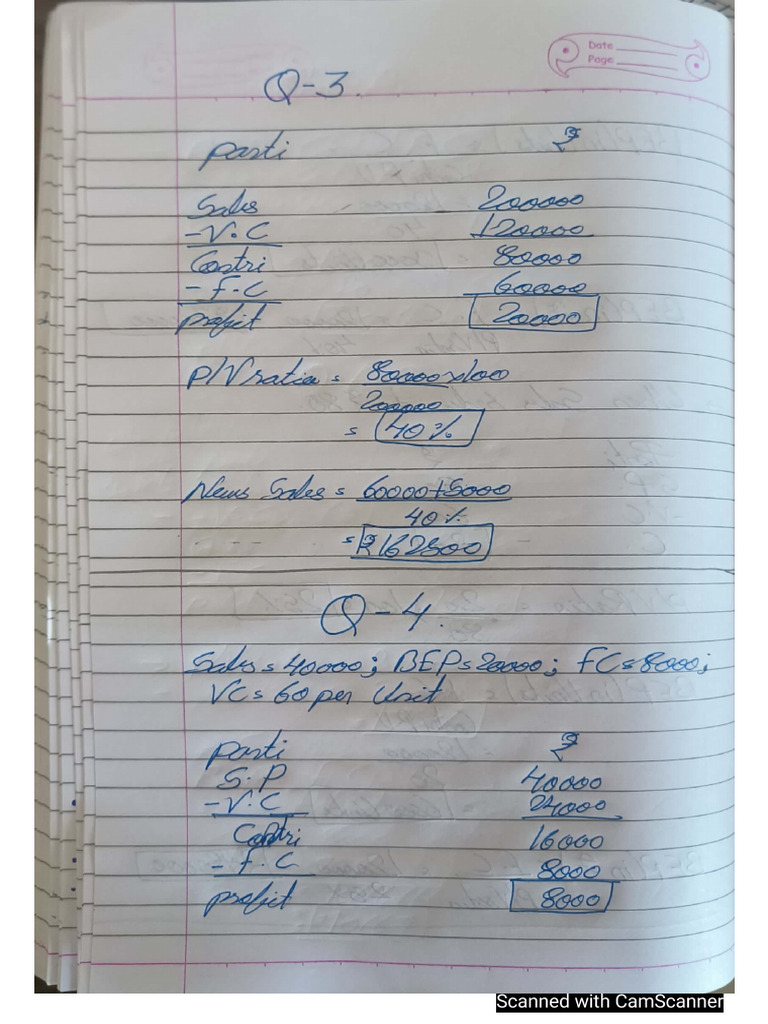 Date
Page
Q-3.
Parti ₹
Sales 200000
- V.C 120000
Contri 80000
- F.C 60000
profit 20000
P/V ratio = 80000x100
200000
= 40%
New Sales = 60000+5000
40%
= ₹162500
Q-4.
Sales = 40000; BEP = 20000; FC = 8000;
VC = 60 per Unit
Parti ₹
S.P 40000
- V.C 24000
Contri 16000
- F.C 8000
profit 8000
Scanned with CamScanner